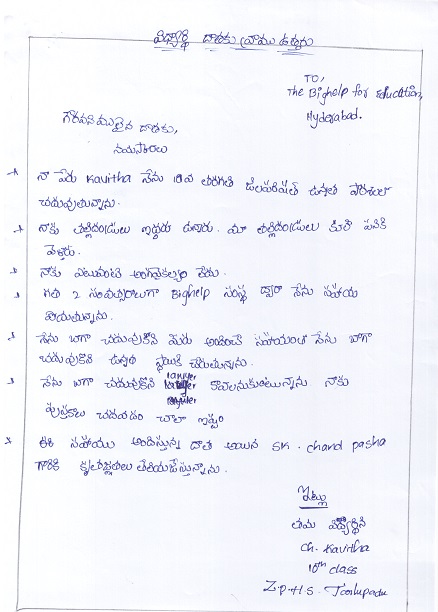 విద్యార్థి దాతకు వ్రాయు ఉత్తరం
TO,
The Bighelp for education,
Hyderabad.
గౌరవనీయులైన దాతకు,
నమస్కారాలు
నా పేరు Kavitha నేను 10వ తరగతి జిల్లాపరిషత్ ఉన్నత పాఠశాలలో
చదువుతున్నాను.
నాకు తల్లిదండ్రులు ఇద్దరు ఉన్నారు. మా తల్లిదండ్రులు కూలి పనికి
వెళ్తారు.
నాకు ఎటువంటి అంగవైకల్యం లేదు.
గత 2 సంవత్సరాలుగా Bighelp సంస్థ ద్వారా నేను సహాయ
పొందుతున్నాను.
నేను బాగా చదువుకొని మీరు అందించే సహాయంతో నేను బాగా
చదువుకొని ఉన్నత స్థాయికి చేరుతున్నాను.
నేను బాగా చదువుకొని కావాలనుకుంటున్నాను నాకు
పుస్తకాలు చదవడం చాలా ఇష్టం
ఈ సహాయం అందిస్తున్న దాత అయిన SK. chand pasha
గారికి కృతజ్ఞతలు తెలియజేస్తున్నాను.
ఇట్లు
తమ విద్యార్థిని
ch. Kavitha
10th class
Z.P.H.S.